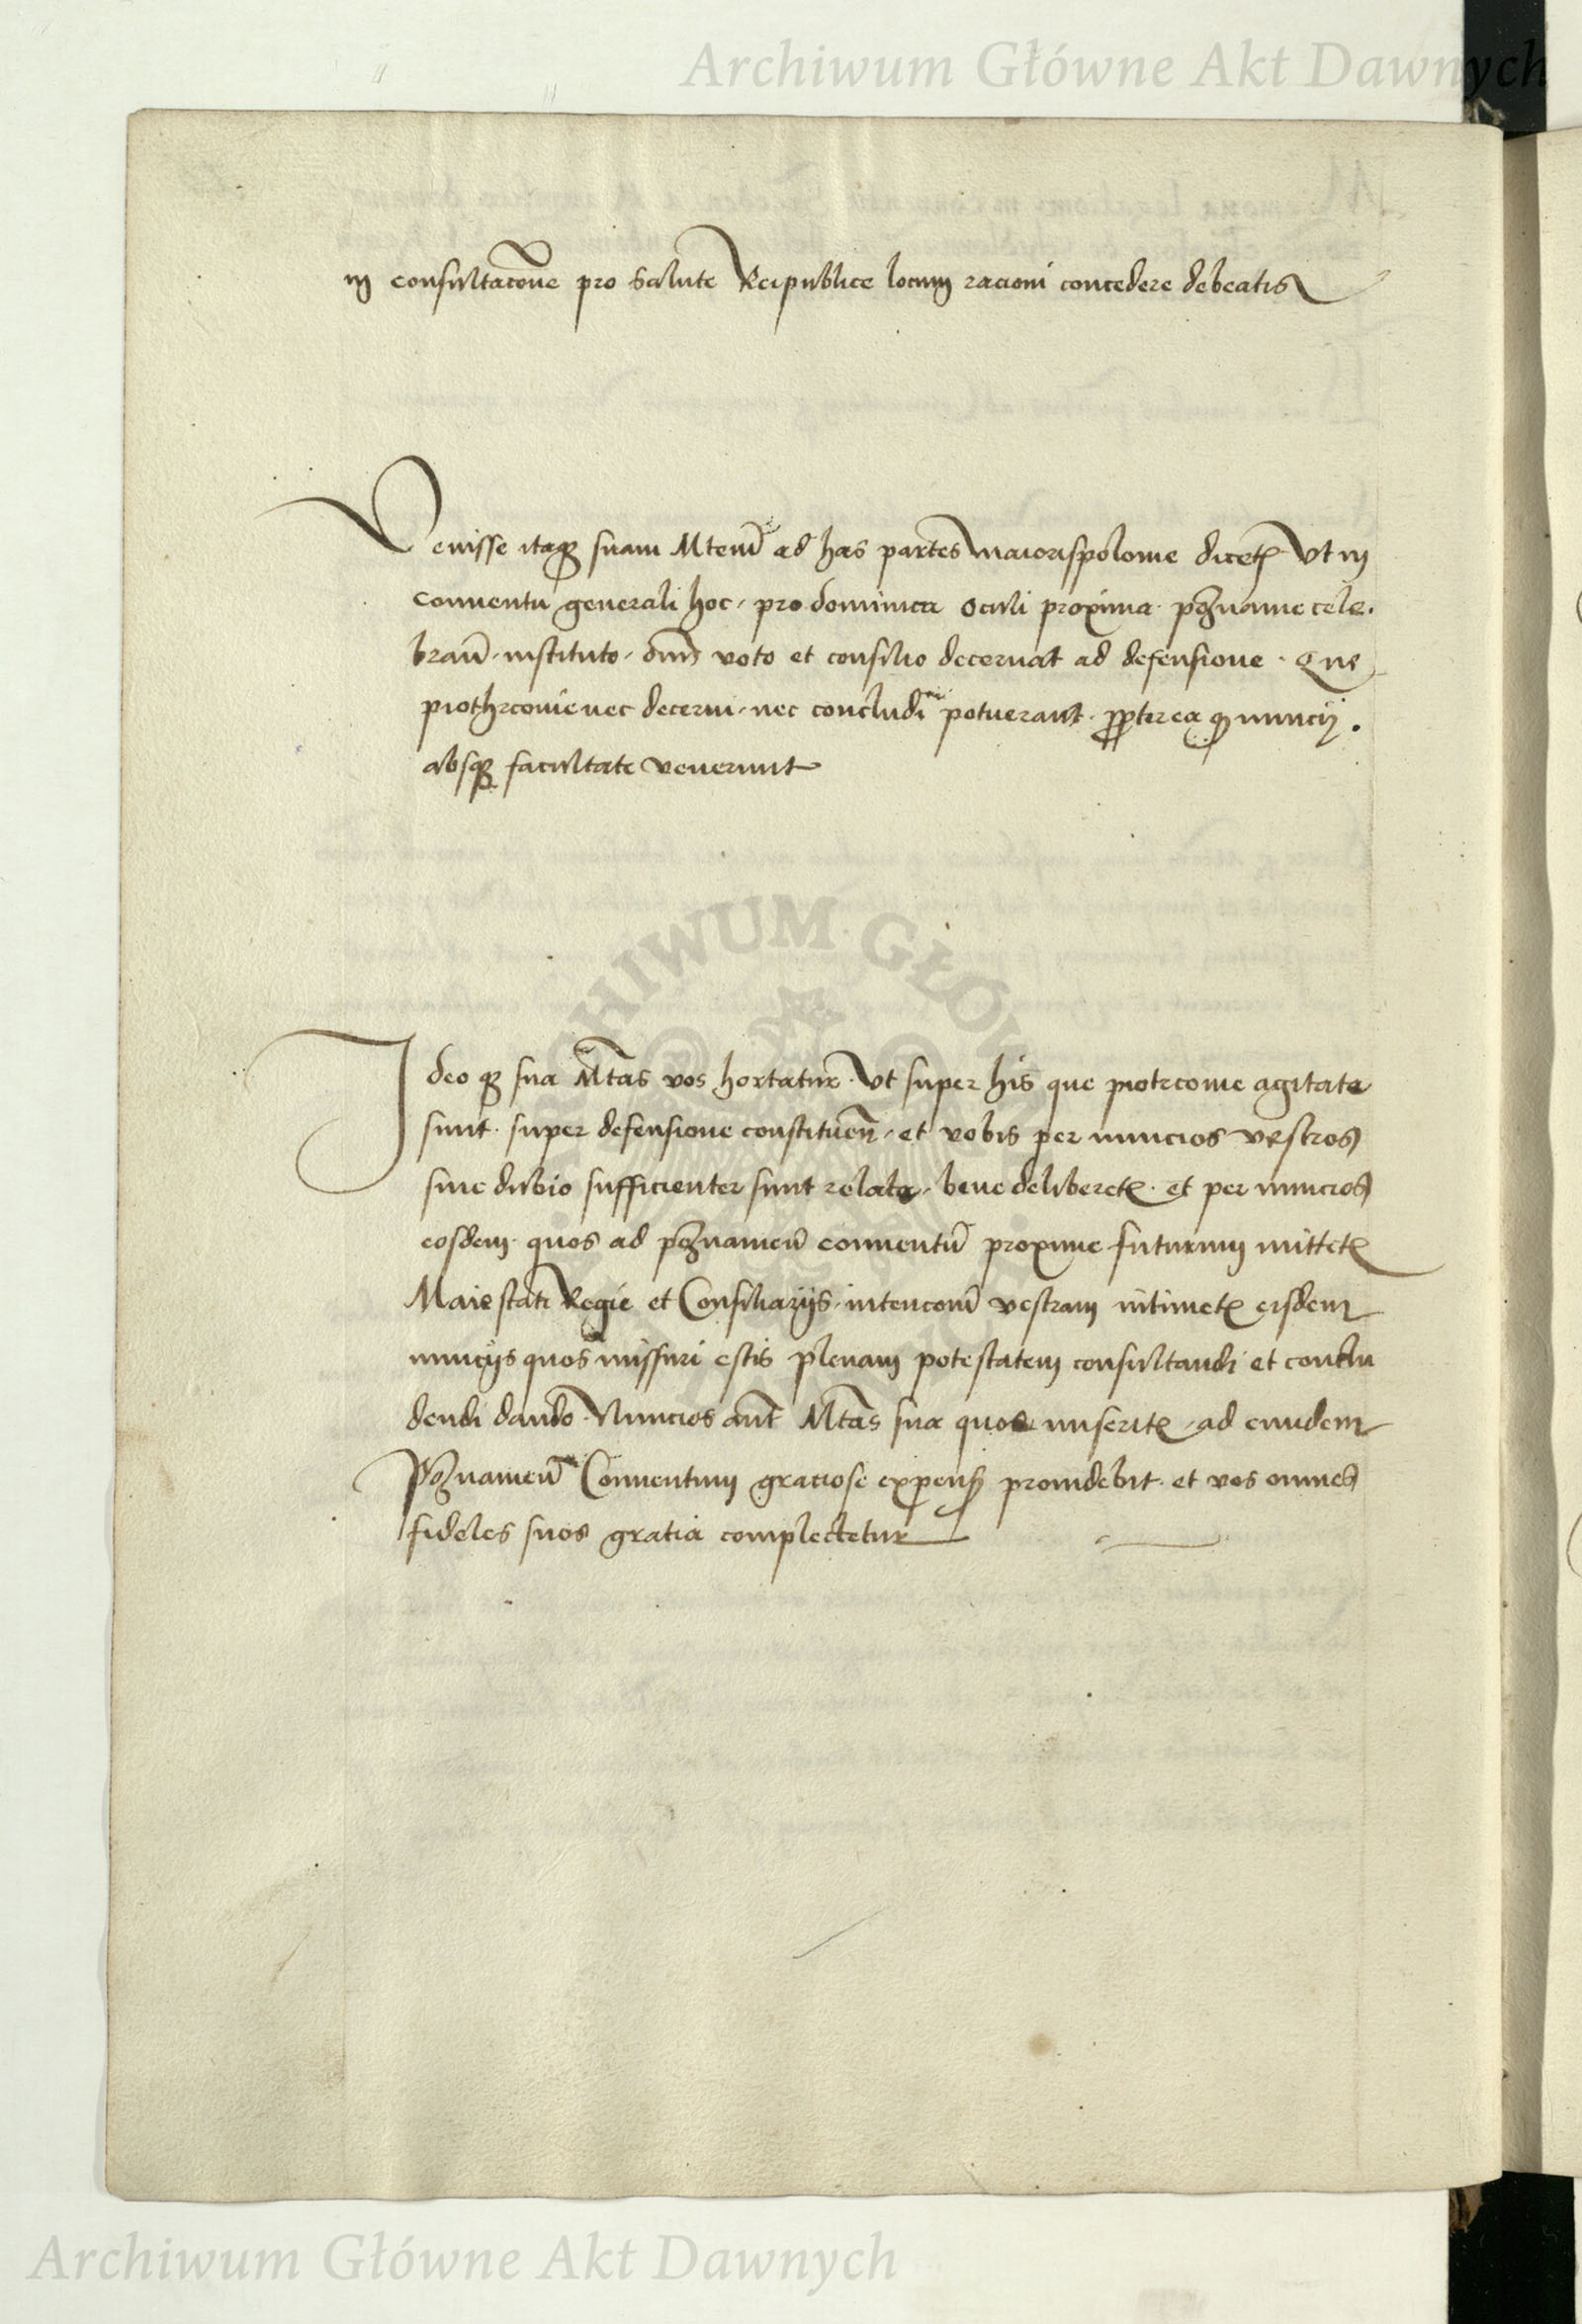 Archiwum Główne Akt Dawnych
in consultacone pro salute Reipublice locum racioni concedere debeatis
Venisse itaque suam Mtem ad has partes maiorispolonie dicetis Vt in
conventu generali hoc, pro dominica oculi proxima poznanie cele.
bran. instituto, omni voto et consilio decernat ad defensione. Que
piothrconie nec decerni, nec concludi potuerant. propterea quod nuncij.
absque facultate venerunt
Ideoque sua Mtas vos hortatur. Vt super his que piotrconie agitata
sunt. super defensione constituen, et vobis per nuncios vestros
sine dubio sufficienter sunt relata, bene deliberetis. et per nuncios
eosdem. quos ad poznanien conventum proxime futurum mittetis
Maiestati Regie et Consiliarijs, intenconem vestram intimetis eisdem
nuncijs quos missuri estis plenam potestatem consultandi et conclu
dendi dando. Nuncios aut Mtas sua quos miseritis, ad eundem
Poznanien Conventum graciose expens providebit. et vos omnes
fideles suos gratia complectetur
Archiwum Główne Akt Dawnych